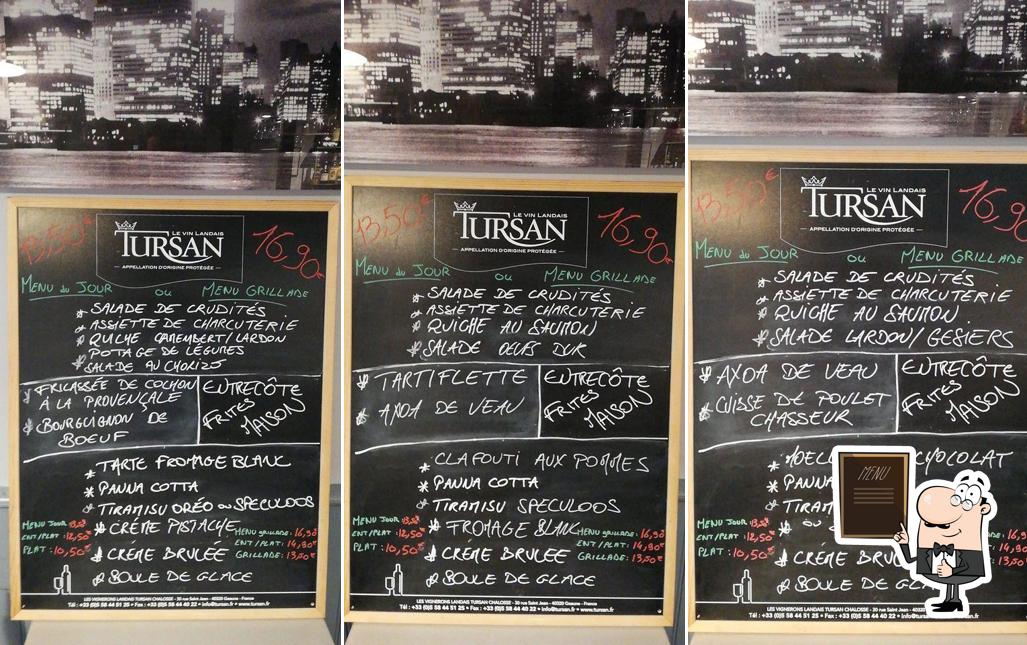 13,50€
LE VIN LANDAIS
TURSAN
APPELLATION D'ORIGINE PROTÉGÉE
16,90€
MENU du JOUR ou MENU GRILLADE
* SALADE DE CRUDITÉS
* ASSIETTE DE CHARCUTERIE
* QUICHE CAMEMBERT/LARDON
POTAGE DE LÉGUMES
* SALADE AU CHORIZO
* FRICASSÉE DE COCHON
À LA PROVENÇALE
* BOURGUIGNON DE
BOEUF
ENTRECÔTE
FRITES
MAISON
* TARTE FROMAGE BLANC
* PANNA COTTA
* TIRAMISU ORÉO ou SPÉCULOOS
* CRÉME PISTACHE
* CRÉME BRULÉE
* BOULE DE GLACE
MENU JOUR : 13,50
ENT/PLAT : 12,50€
PLAT : 10,50€
MENU GRILLADE : 16,90
ENT/PLAT : 14,90€
GRILLADE : 13,50€
LES VIGNERONS LANDAIS TURSAN CHALOSSE - 30 rue Saint Jean - 40320 Geaune - France
Tél : +33 (0)5 58 44 51 25 • Fax : +33 (0)5 58 44 40 22 • info@tursan.fr • www.tursan.fr
13,50€
LE VIN LANDAIS
TURSAN
APPELLATION D'ORIGINE PROTÉGÉE
16,90€
MENU du JOUR ou MENU GRILLADE
* SALADE DE CRUDITÉS
* ASSIETTE DE CHARCUTERIE
* QUICHE AU SAUMON
* SALADE OEUFS DUR
* TARTIFLETTE
* AXOA DE VEAU
ENTRECÔTE
FRITES
MAISON
* CLAFOUTI AUX POMMES
* PANNA COTTA
* TIRAMISU SPÉCULOOS
* FROMAGE BLANC
* CRÉME BRULÉE
* BOULE DE GLACE
MENU JOUR : 13,50
ENT/PLAT : 12,50€
PLAT : 10,50€
MENU GRILLADE : 16,90
ENT/PLAT : 14,90€
GRILLADE : 13,50€
LES VIGNERONS LANDAIS TURSAN CHALOSSE - 30 rue Saint Jean - 40320 Geaune - France
Tél : +33 (0)5 58 44 51 25 • Fax : +33 (0)5 58 44 40 22 • info@tursan.fr • www.tursan.fr
13,50€
LE VIN LANDAIS
TURSAN
APPELLATION D'ORIGINE PROTÉGÉE
16,90
MENU du JOUR ou MENU GRILLADE
* SALADE DE CRUDITÉS
* ASSIETTE DE CHARCUTERIE
* QUICHE AU SAUMON
* SALADE LARDON/GESIERS
* AXOA DE VEAU
* CUISSE DE POULET
CHASSEUR
ENTRECÔTE
FRITES
MAISON
CHOCOLAT
* PANNA
* TIRAMISU
ou
* CRÉME BRULÉE
* BOULE DE GLACE
MENU JOUR : 13,50
ENT/PLAT : 12,50€
PLAT : 10,50€
16,90
14,90€
13,50€
LES VIGNERONS LANDAIS TURSAN CHALOSSE - 30 rue Saint Jean - 40320 Geaune - France
Tél : +33 (0)5 58 44 51 25 • Fax : +33 (0)5 58 44 40 22 • info@tursan.fr • www.tursan.fr
MENU